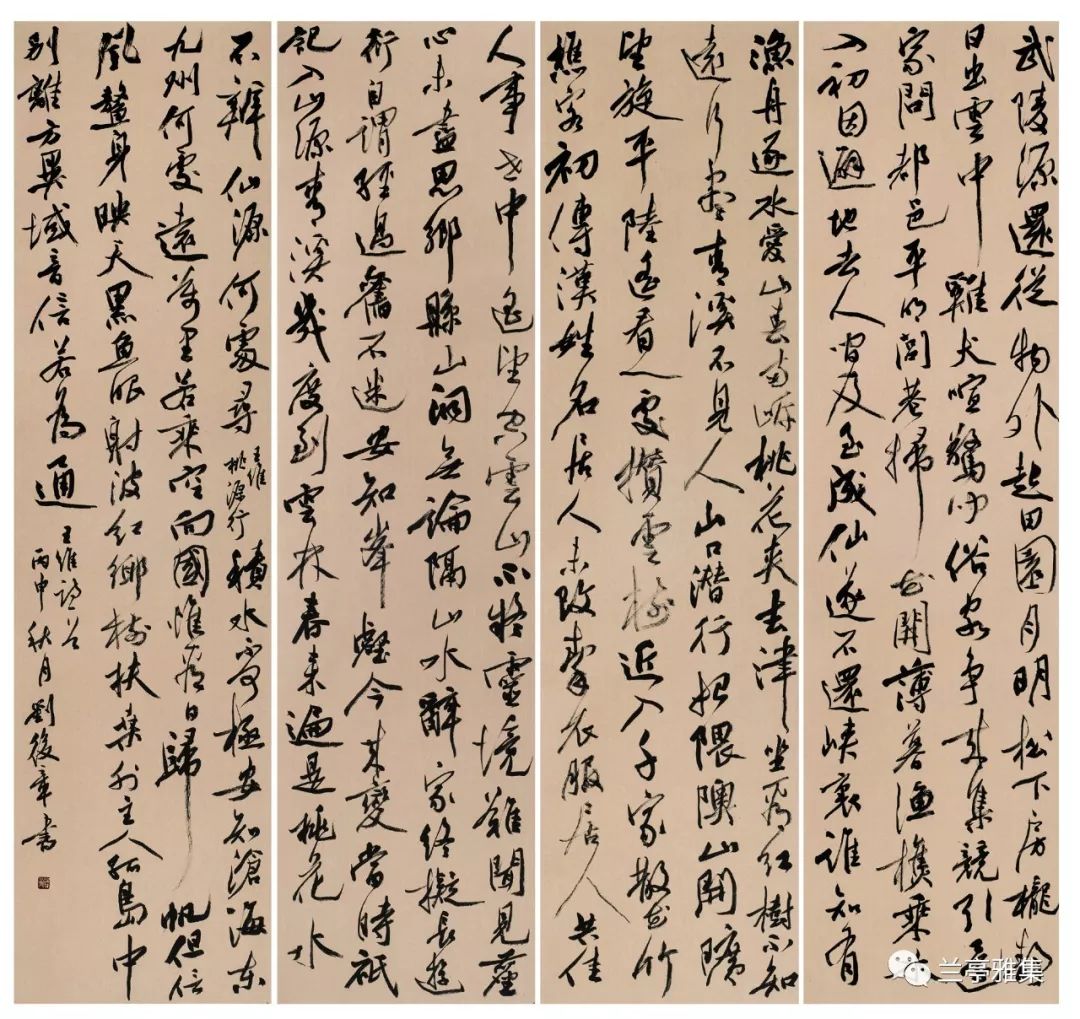 武陵源還從物外起田園月明松下房櫳靜
日出雲中雞犬喧驚聞俗客爭來集競引還
家問都邑平明閭巷掃花開薄暮漁樵乘水
入初因避地去人間及至成仙遂不還峽裏誰知有
漁舟逐水愛山春兩岸桃花夾去津坐看紅樹不知
遠行盡青溪不見人山口潛行始隈隩山開曠
望旋平陸遙看一處攢雲樹近入千家散花竹
樵客初傳漢姓名居人未改秦衣服居人共住
人事世中遙望空雲山不疑靈境難聞見塵
心未盡思鄉縣出洞無論隔山水辭家終擬長遊
衍自謂經過舊不迷安知峰壑今來變當時祇
記入山深青溪幾度到雲林春來遍是桃花水
不辨仙源何處尋
王維
桃源行
積水不可極安知滄海東
九州何處遠萬里若乘空向國惟看日歸帆但信
風鰲身映天黑魚眼射波紅鄉樹扶桑外主人孤島中
別離方異域音信若為通
王維詩二首
丙申秋月劉後章書
兰亭雅集